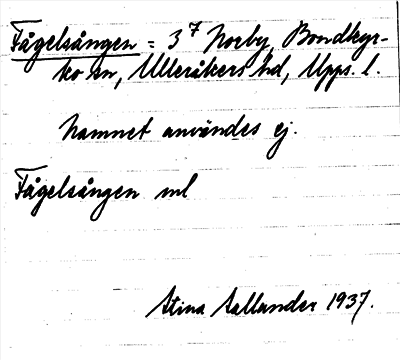 Fågelsången = 3⁷ Norby, Bondkyr-
ko sn, Ulleråkers hd, Upps. l.
Namnet användes ej.
Fågelsången ml
Stina Sallander 1937.